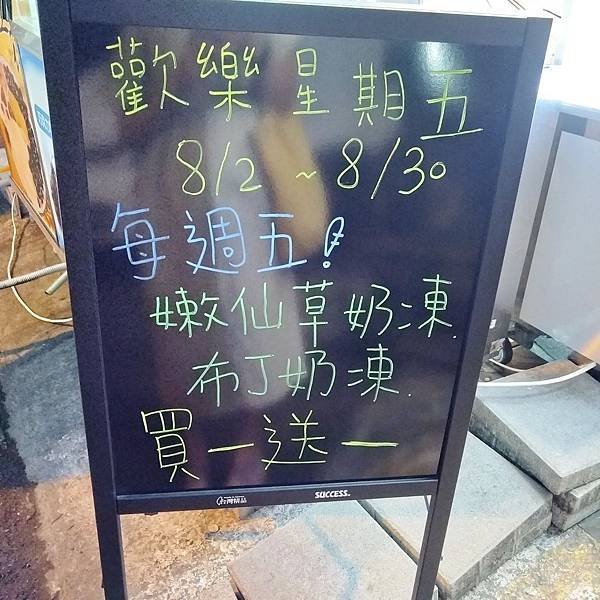 歡樂星期五
8/2 ~ 8/30
每週五!
嫩仙草奶凍.
布丁奶凍.
買一送一
台灣精品
SUCCESS.